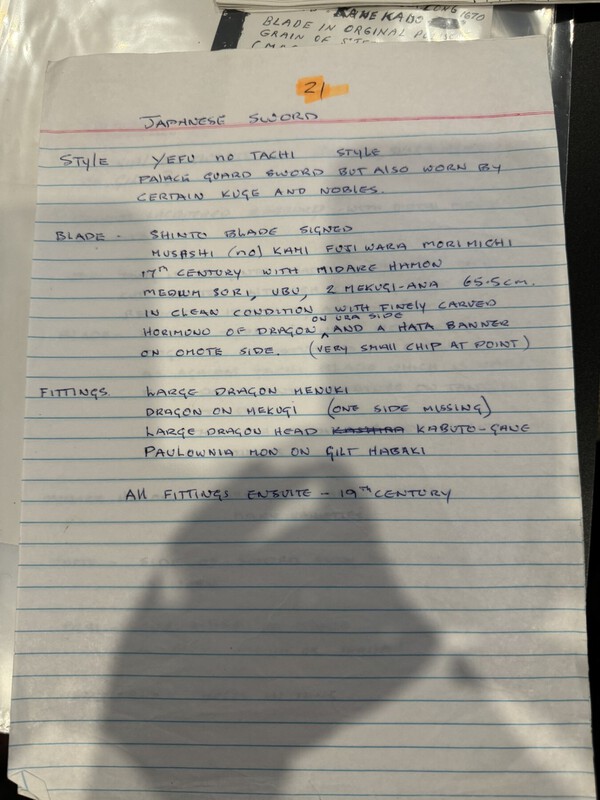 KANEKADO LONG 1670
BLADE IN ORGINAL
GRAIN OF
21
JAPANESE SWORD
STYLE YEFU no TACHI STYLE
PALACE GUARD SWORD BUT ALSO WORN BY
CERTAIN KUGE AND NOBLES.
BLADE - SHINTO BLADE SIGNED
MUSASHI (no) KAMI FUJIWARA MORIMICHI
17th CENTURY WITH MIDARE HAMON
MEDIUM SORI, UBU, 2 MEKUGI-ANA 65.5cm.
IN CLEAN CONDITION WITH FINELY CARVED
HORIMONO OF DRAGON ON URA SIDE AND A HATA BANNER
ON OMOTE SIDE. (VERY SMALL CHIP AT POINT)
FITTINGS LARGE DRAGON MENUKI
DRAGON ON MEKUGI (ONE SIDE MISSING)
LARGE DRAGON HEAD KASHIRA KABUTO-GANE
PAULOWNIA MON ON GILT HABAKI
All FITTINGS ENSUITE - 19TH CENTURY